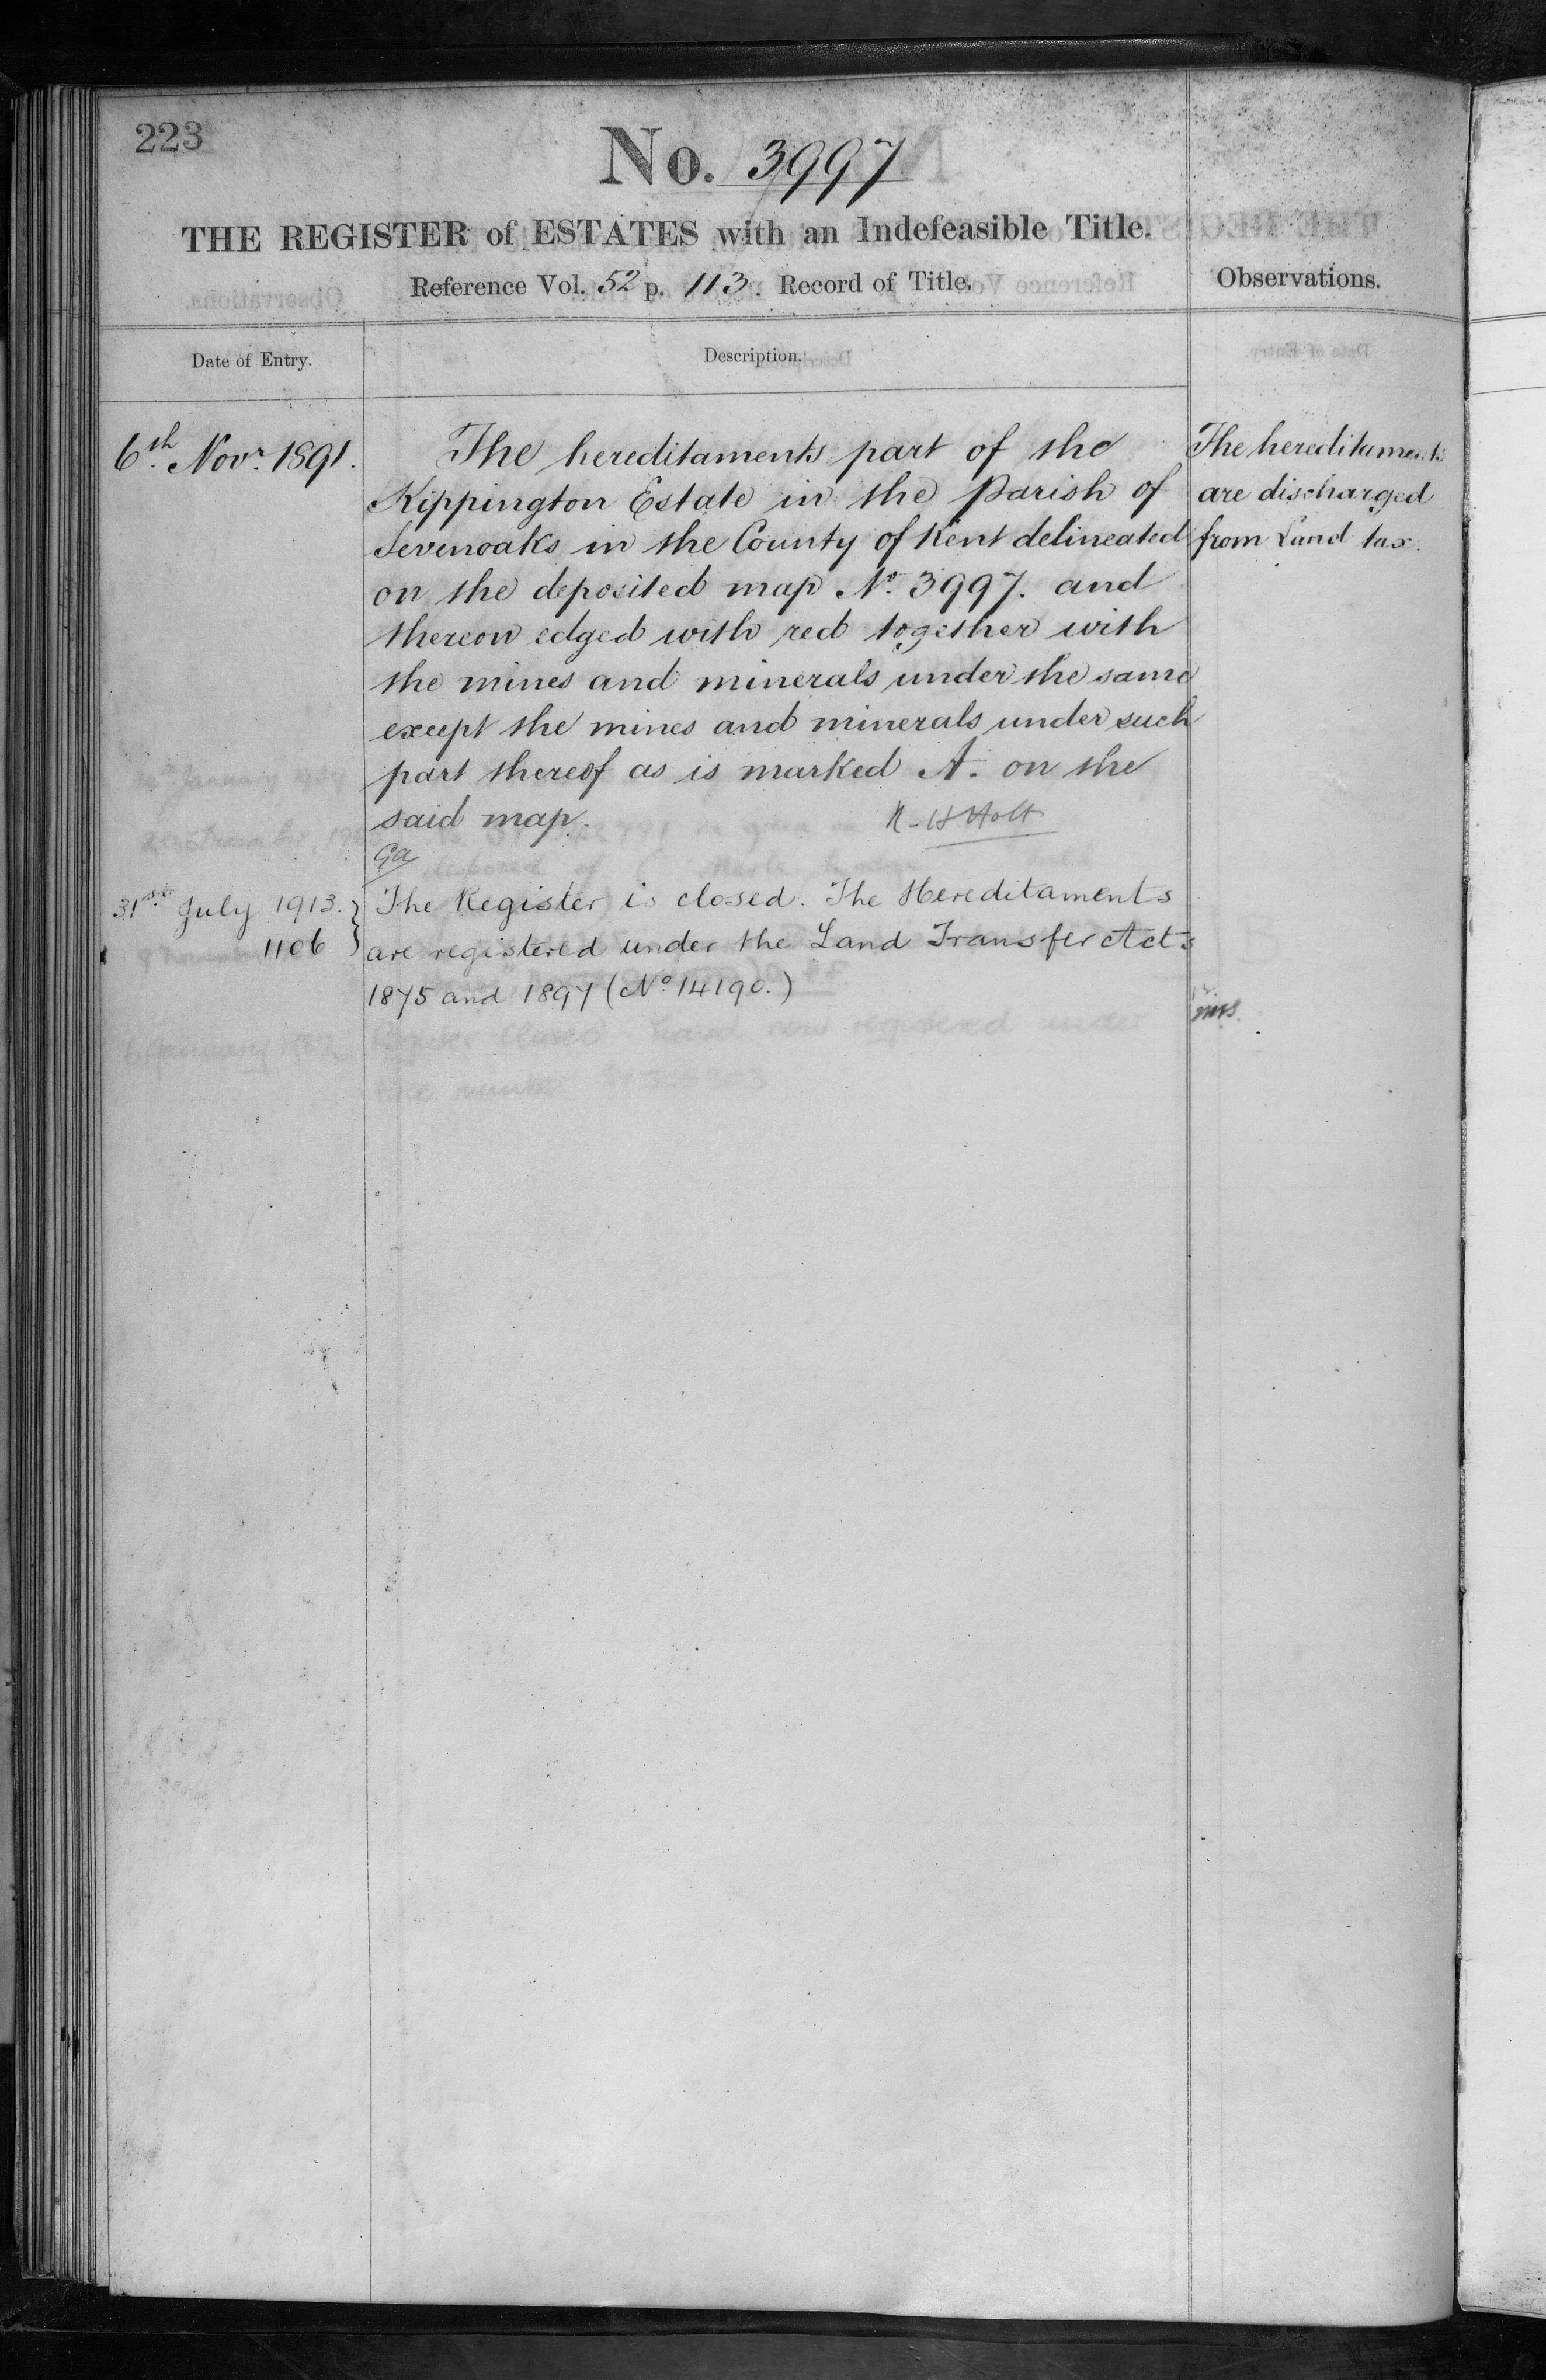 223
No. 3997
THE REGISTER of ESTATES with an Indefeasible Title.
Reference Vol. 52 p. 113. Record of Title.
Observations.
Date of Entry.
Description.
6th. Novr. 1891.
The hereditaments part of the
Kippington Estate in the Parish of
Sevenoaks in the County of Kent delineated
on the deposited map No. 3997. and
thereon edged with red together with
the mines and minerals under the same
except the mines and minerals under such
part thereof as is marked A. on the
said map.
Holt
The hereditaments
are discharged
from Land tax.
31st July 1913.
1106
The Register is closed. The Hereditaments
are registered under the Land Transfer Acts
1875 and 1897 (No 14190.)